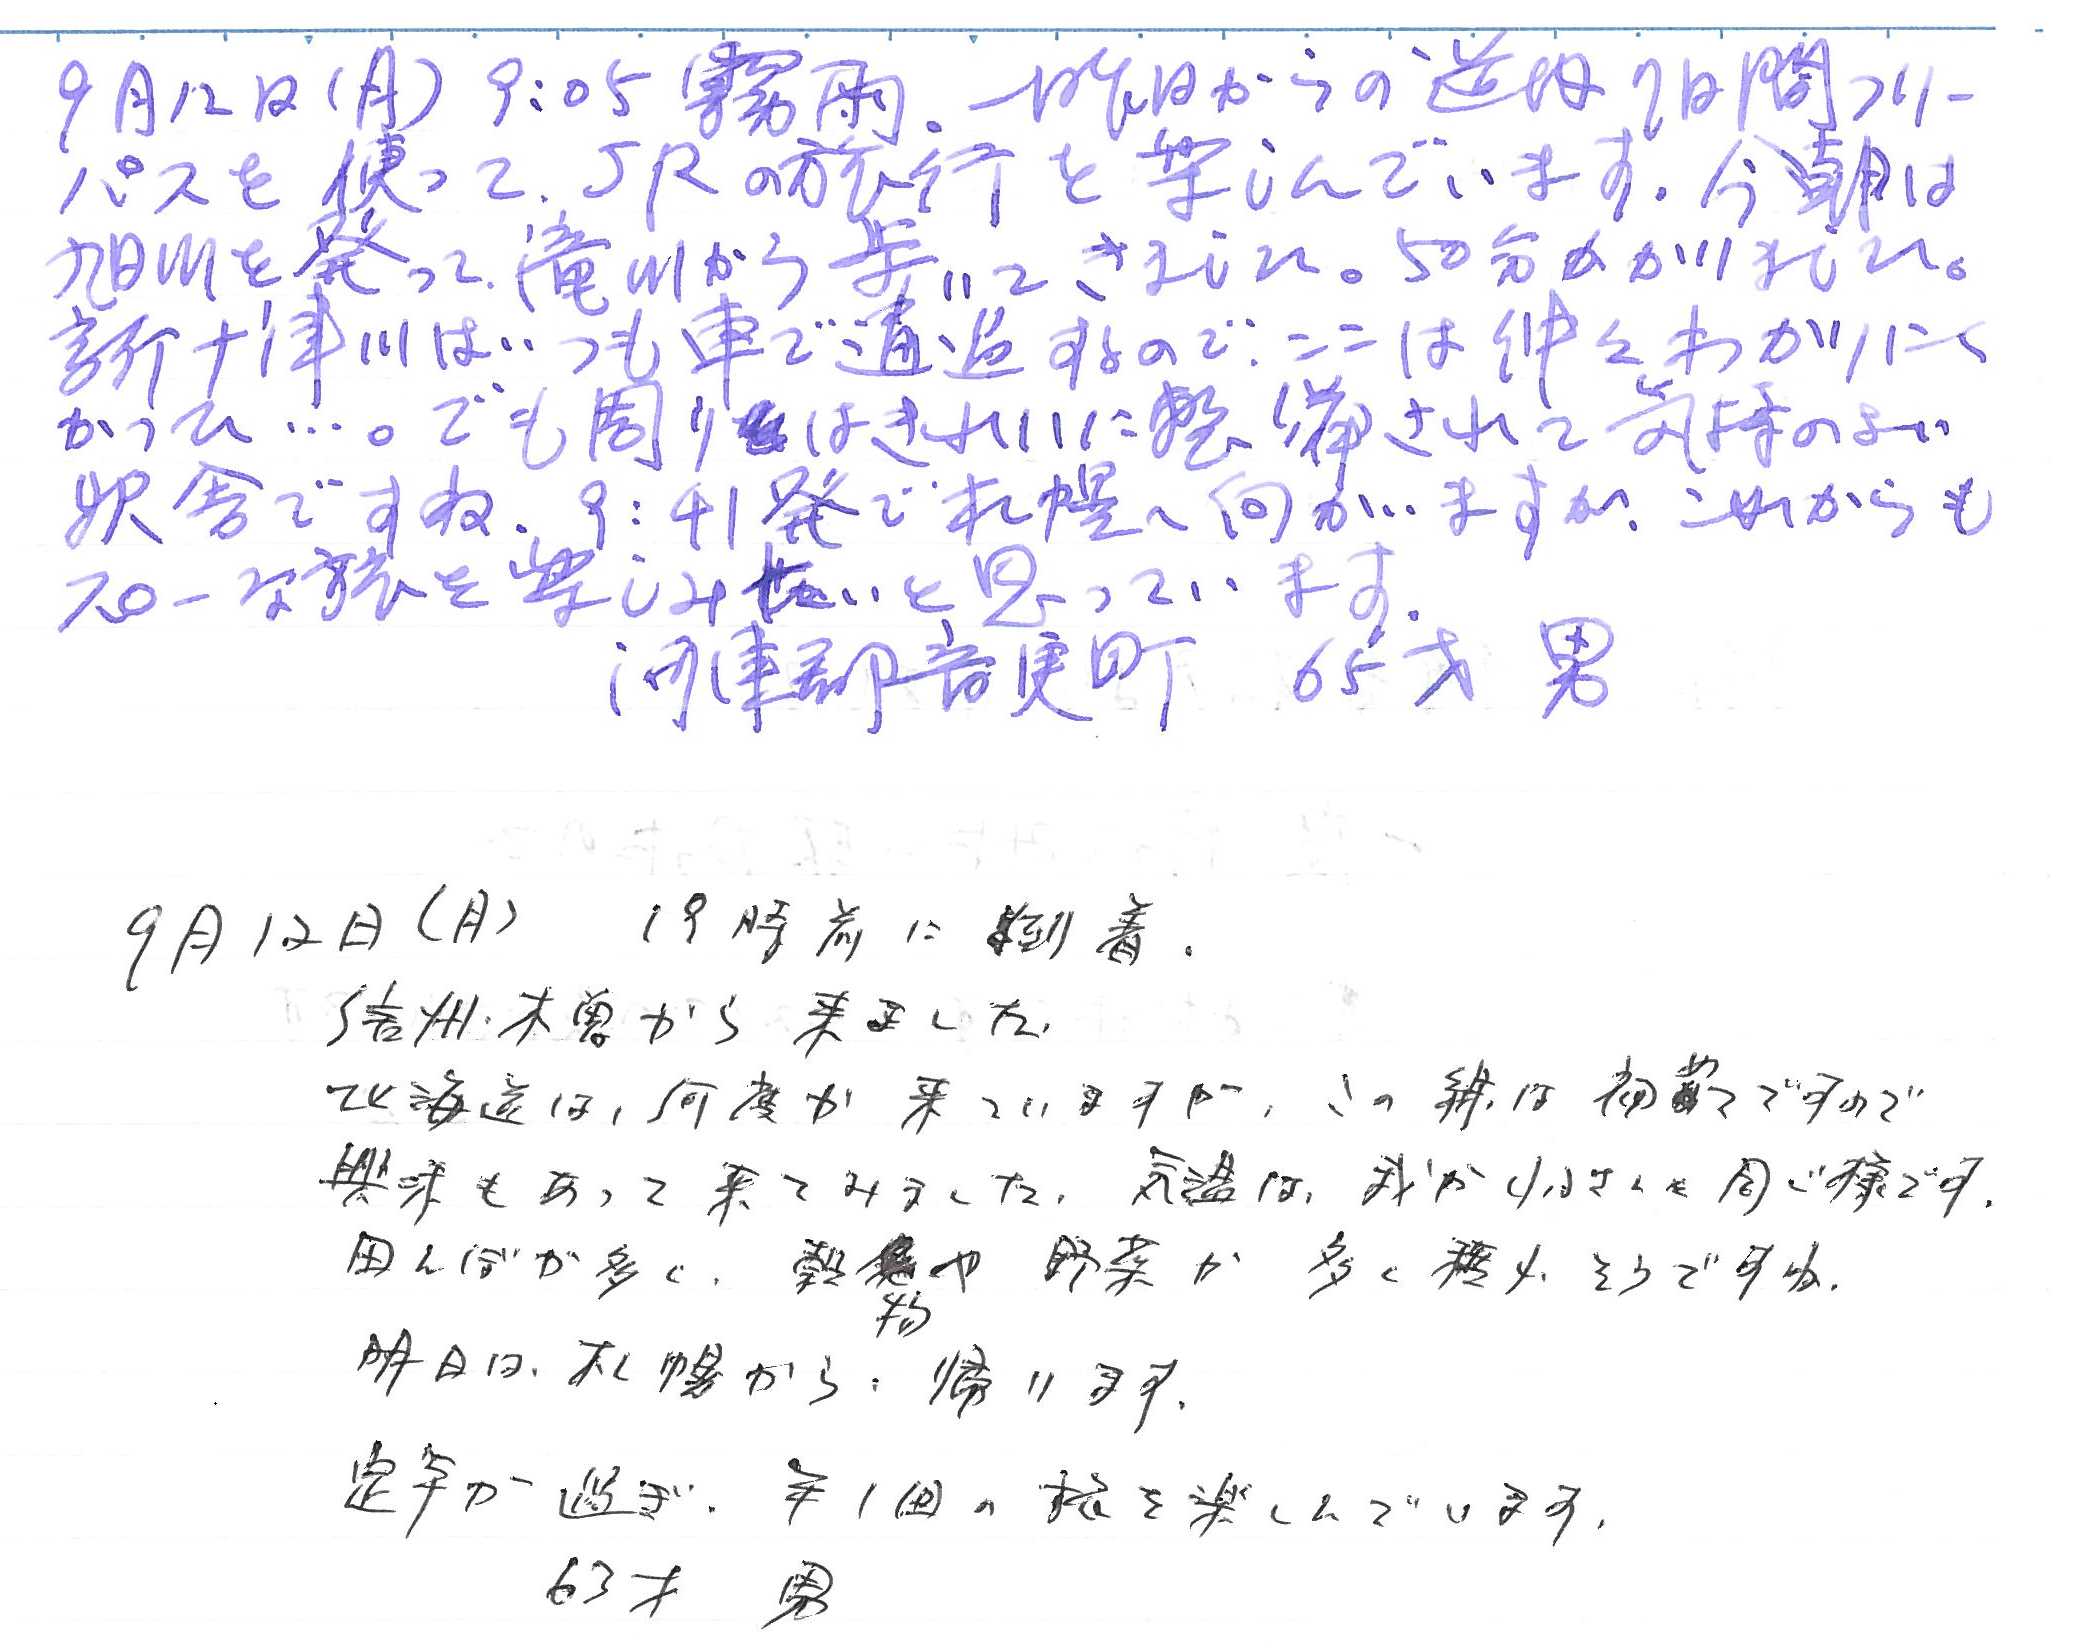 9月12日(月) 9:05 霧雨。一昨日からの道内7日間フリー
パスを使って、JRの旅行を楽しんでいます。今朝は
旭川を発って、滝川から歩いてきました。50分かかりました。
新十津川はいつも車で通過するので、ここは仲々わかりにく
かった…。でも周りはきれいに整備されて気持のよい
駅舎ですね。9:41発で札幌へ向かいますが、これからも
スローな旅を楽しみたいと思っています。
河東郡音更町 65才 男
9月12日(月) 19時前に到着.
信州・木曽から来ました.
北海道は、何度か来ていますが、この線は初めてですので
興味もあって来てみました. 気温は、我が ふるさとと同じ様です.
田んぼが多く、穀物や野菜が多く穫れそうですね.
明日は、札幌から、帰ります.
定年が過ぎ、年1回の旅を楽しんでいます.
63才 男